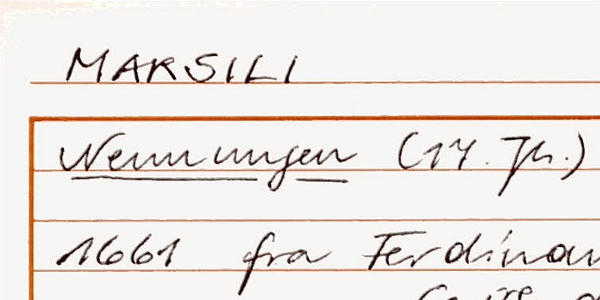 MARSILI
Nennungen (17. Jh.)
1661 fra Ferdinan